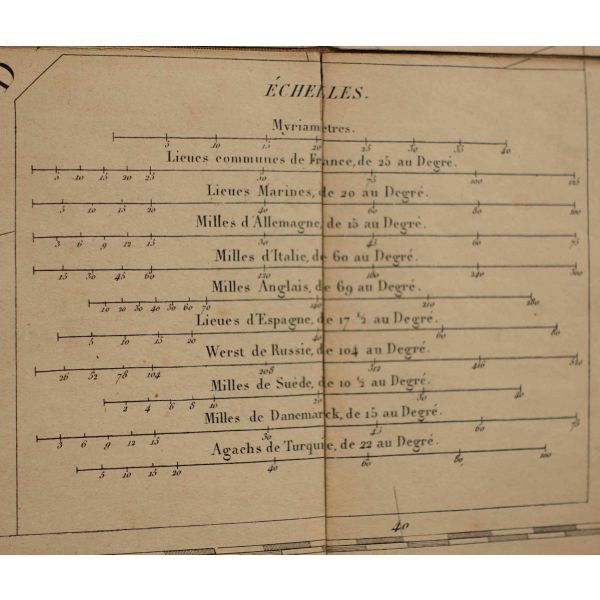 D
ÉCHELLES.
Myriametres.
5 10 15 20 25 30 35 40
Lieues communes de France, de 25 au Degré.
5 10 15 20 25 50 75 100 125
Lieues Marines, de 20 au Degré.
5 10 15 20 40 60 80 100
Milles d'Allemagne, de 15 au Degré.
3 6 9 12 15 30 45 60 75
Milles d'Italie, de 60 au Degré.
15 30 45 60 120 180 240 300
Milles Anglais, de 69 au Degré.
10 20 30 40 50 60 70 140 210 280
Lieues d'Espagne, de 17 ½ au Degré.
5 10 15 20 40 60 80
Werst de Russie, de 104 au Degré.
26 52 78 104 208 312 416 520
Milles de Suède, de 10 ½ au Degré.
2 4 6 8 10 20 30 40
Milles de Danemarck, de 15 au Degré.
3 6 9 12 15 30 45 60 75
Agachs de Turquie, de 22 au Degré.
5 10 15 20 40 60 80 100
40